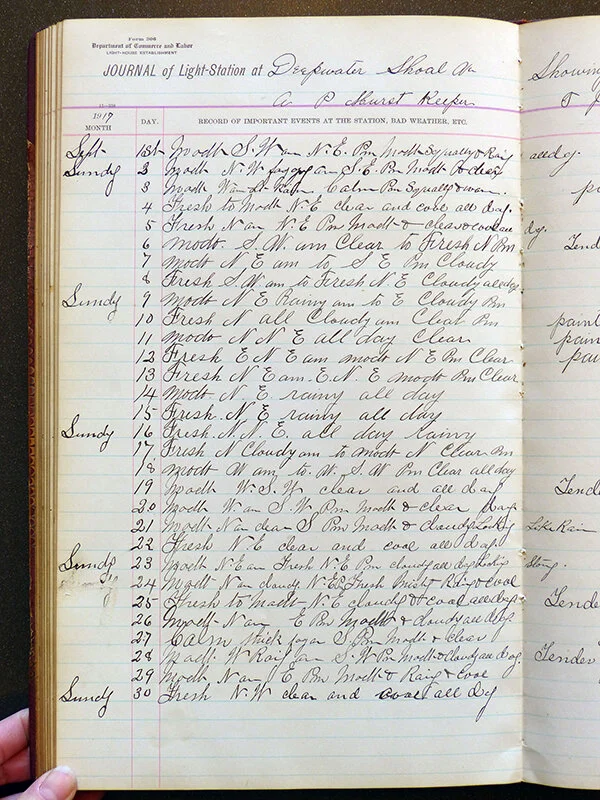 Form 306
Department of Commerce and Labor
LIGHT-HOUSE ESTABLISHMENT
JOURNAL of Light-Station at Deepwater Shoal Va
A P Hurst Keeper
1917
MONTH DAY. RECORD OF IMPORTANT EVENTS AT THE STATION, BAD WEATHER, ETC.
Sept 1st Modt S. W am N. E. Pm Modt Squally & Rain
Sundy 2 Modt N. W am S. E. Pm Modt & clear
3 Modt W am Calm Pm Squally & warm.
4 Fresh to Modt N. E clear and cool all day.
5 Fresh N am N. E Pm Modt & clear & cool all
6 modt S. W am Clear to Fresh N Pm
7 modt N E am to S E Pm Cloudy
8 Fresh S. W am to Fresh N E Cloudy all dy
Sundy 9 modt N E Rainy am to E Cloudy Pm
10 Fresh N all Cloudy am Clear Pm
11 modt N N E all day Clear
12 Fresh E N E am modt N E Pm Clear
13 Fresh N E am. E. N. E modt Pm Clear
14 Modt N. E rainy all day
15 Fresh. N E rainy all day
Sundy 16 Fresh. N. N. E. all day rainy
17 Fresh N Cloudy am to modt N Clear Pm
18 modt W am to. W. S. W Pm Clear all day
19 Modt W. S. W clear and all day
20 Modt W am S. W Pm Modt & clear day
21 Modt N am clear S Pm Modt & cloudy Looks
22 Fresh N. E clear and cool all day
Sundy 23 Modt N. E am Fresh N. E Pm cloudy all day
24 Modt N am cloudy N. E Pm Fresh Mist & Rain & cool
25 Fresh to Modt N. E cloudy & cool all day
26 Modt N am E Pm Modt & cloudy all day
27 Calm thick fog am S. Pm Modt & clear
28 Modt W Rain am S. W Pm Modt & cloudy all day
29 Modt N am E Pm Modt & Rain & cool
Sundy 30 Fresh N. W clear and cool all day
Showing
all dy.
dy.
Tend
paint
pain
pai
Tende
Like Rain
Tende
Tender